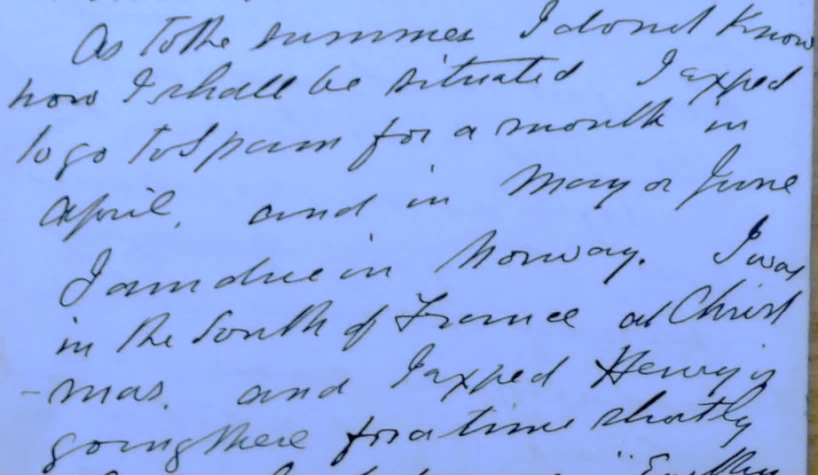 As to the summer I do not know
how I shall be situated I expect
to go to Spain for a month in
April, and in May or June
I am due in Norway. I was
in the South of France at Christ
-mas, and I expect Henry is
going there for a time shortly